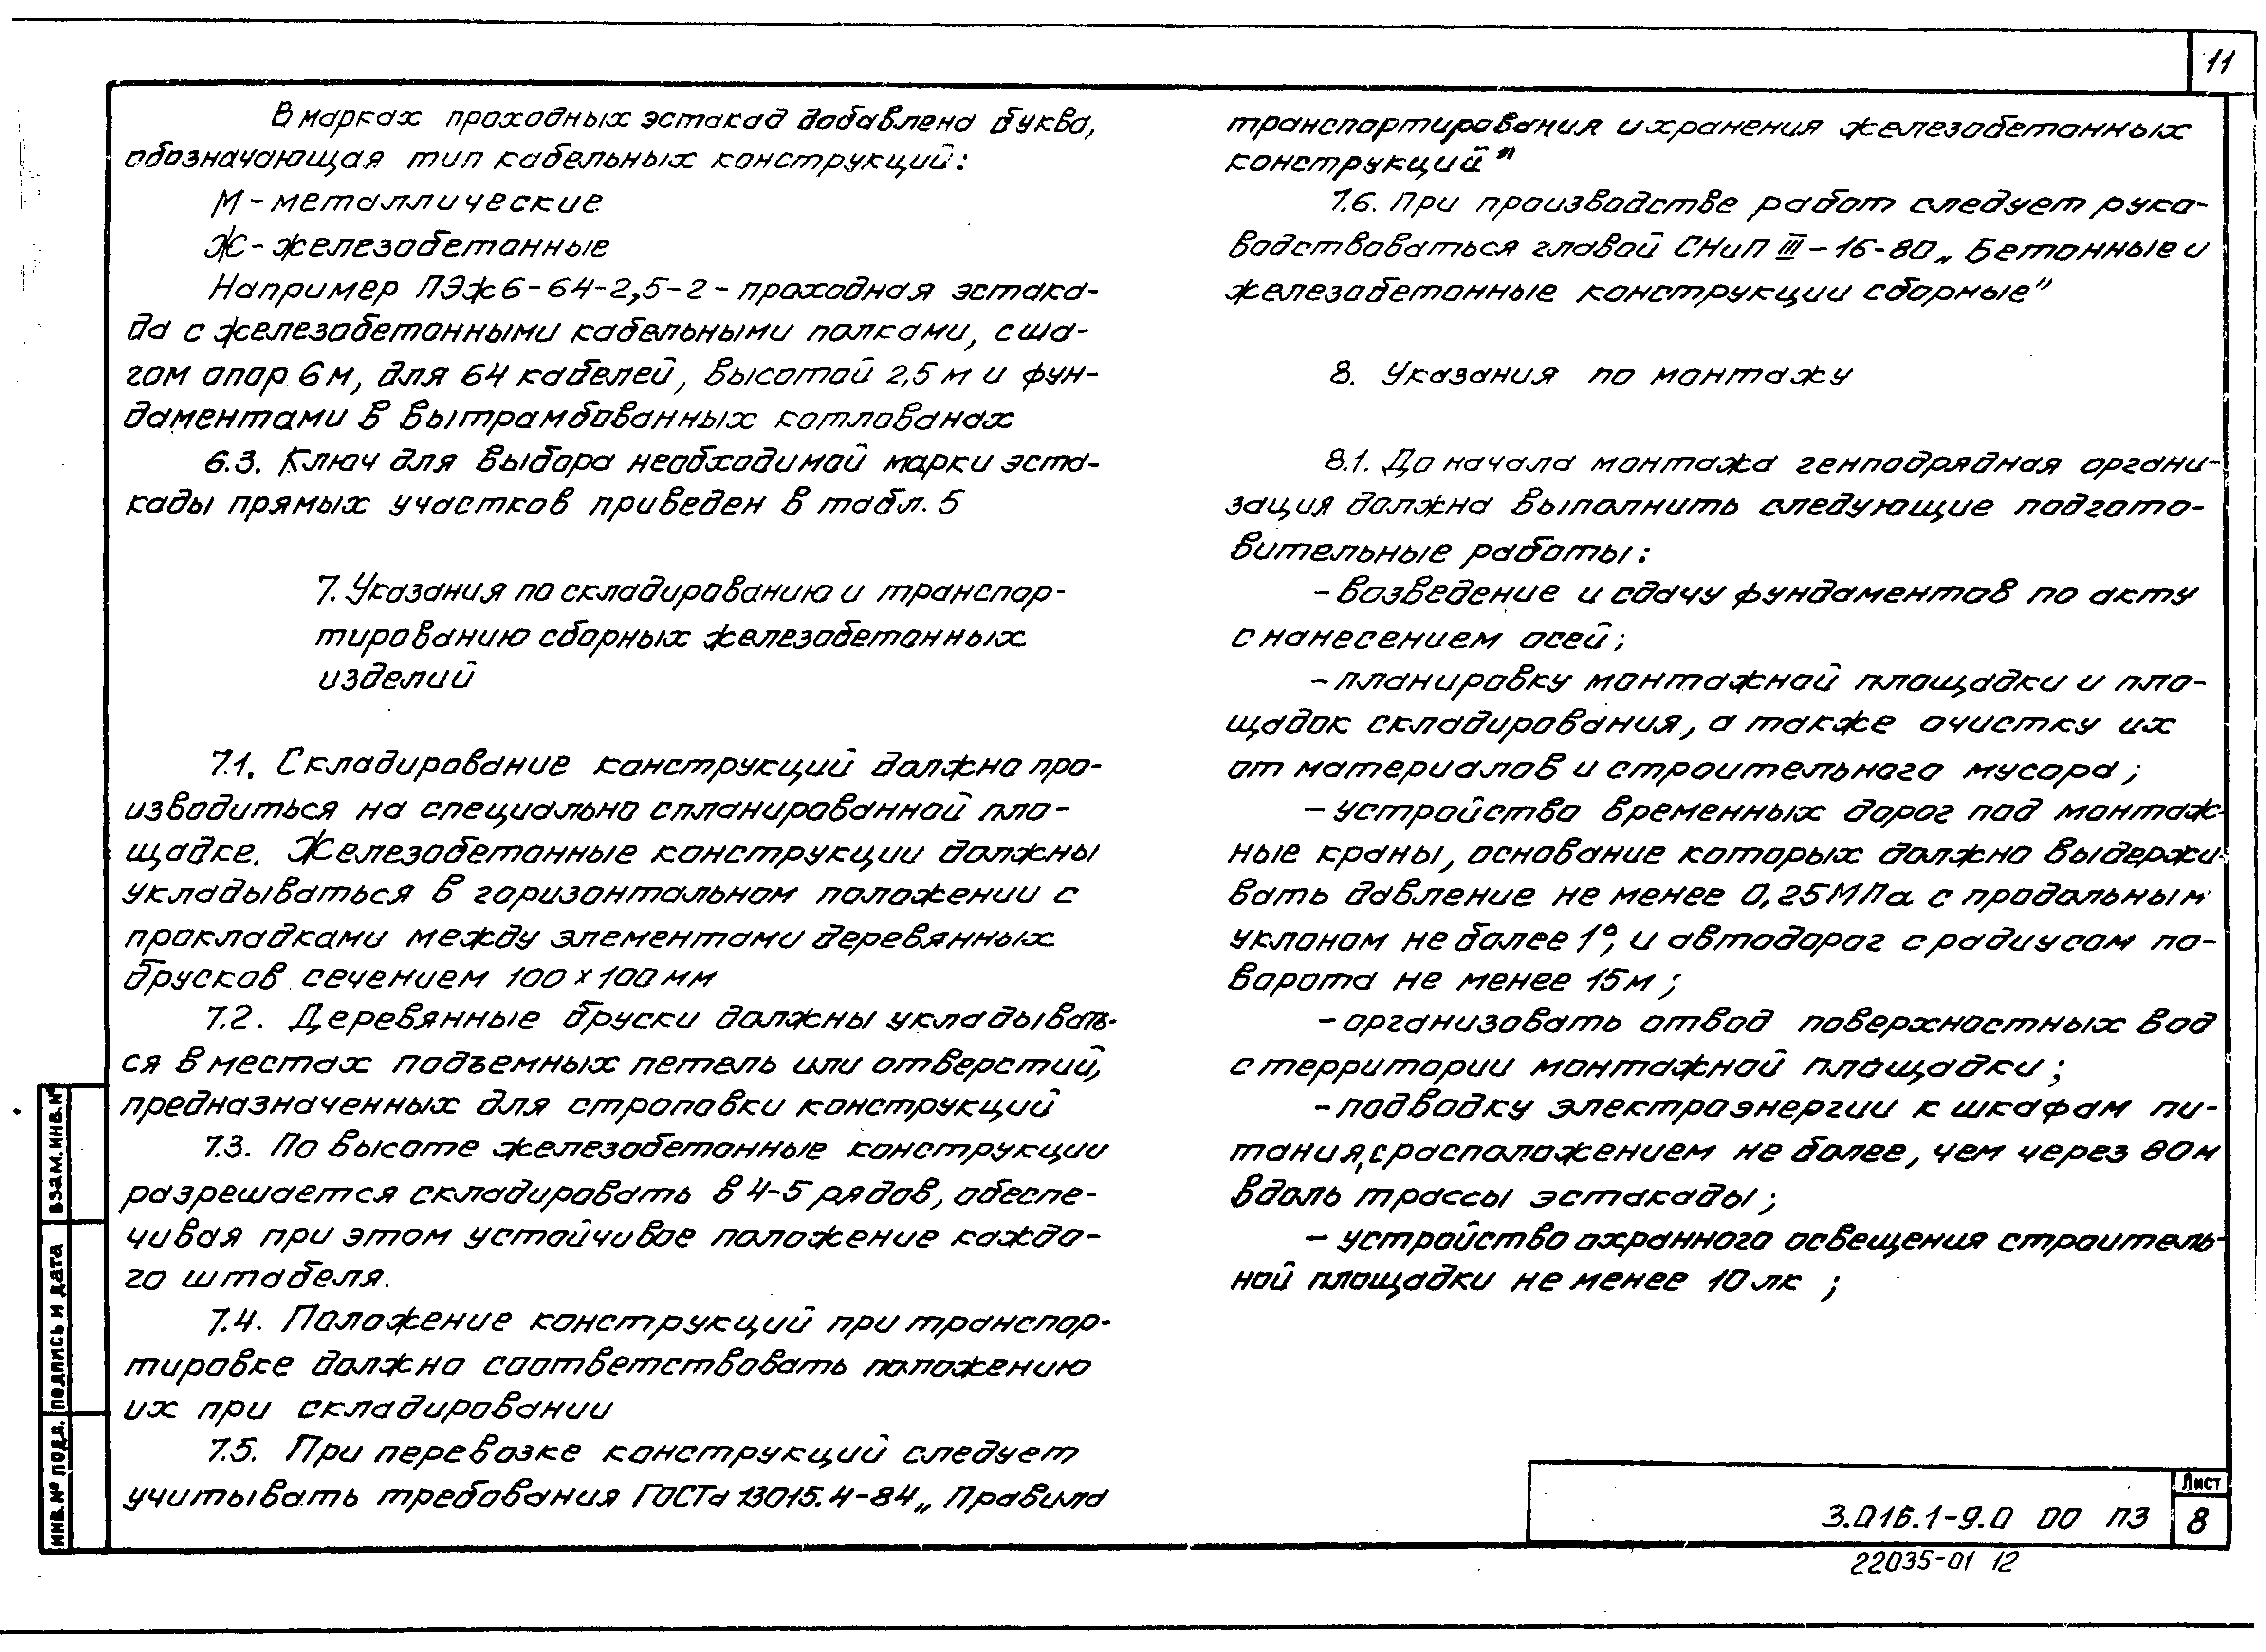 11
В марках проходных эстакад добавлена буква,
обозначающая тип кабельных конструкций:
М - металлические
Ж - железобетонные
Например ПЭЖ6-64-2,5-2 - проходная эстака-
да с железобетонными кабельными полками, с ша-
гом опор 6м, для 64 кабелей, высотой 2,5 м и фун-
даментами в вытрамбованных котлованах
6.3. Ключ для выбора необходимой марки эста-
кады прямых участков приведен в табл. 5
7. Указания по складированию и транспор-
тированию сборных железобетонных
изделий
7.1. Складирование конструкций должно про-
изводиться на специально спланированной пло-
щадке. Железобетонные конструкции должны
укладываться в горизонтальном положении с
прокладками между элементами деревянных
брусков сечением 100 х 100 мм
7.2. Деревянные бруски должны укладывать-
ся в местах подъемных петель или отверстий,
предназначенных для строповки конструкций
7.3. По высоте железобетонные конструкции
разрешается складировать в 4-5 рядов, обеспе-
чивая при этом устойчивое положение каждо-
го штабеля.
7.4. Положение конструкций при транспор-
тировке должно соответствовать положению
их при складировании
7.5. При перевозке конструкций следует
учитывать требования ГОСТа 13015.4-84 „Правила
транспортирования и хранения железобетонных
конструкций"
7.6. При производстве работ следует руко-
водствоваться главой СНиП III-16-80 „Бетонные и
железобетонные конструкции сборные"
8. Указания по монтажу
8.1. До начала монтажа генподрядная органи-
зация должна выполнить следующие подгото-
вительные работы:
- возведение и сдачу фундаментов по акту
с нанесением осей;
- планировку монтажной площадки и пло-
щадок складирования, а также очистку их
от материалов и строительного мусора;
- устройство временных дорог под монтаж-
ные краны, основание которых должно выдержи-
вать давление не менее 0,25МПа с продольным
уклоном не более 1°, и автодорог с радиусом по-
ворота не менее 15м;
- организовать отвод поверхностных вод
с территории монтажной площадки;
- подводку электроэнергии к шкафам пи-
тания, с расположением не более, чем через 80м
вдоль трассы эстакады;
- устройство охранного освещения строитель-
ной площадки не менее 10 лк ;
ВЗАМ.ИНВ.№
ПОДПИСЬ И ДАТА
ИНВ.№ ПОДЛ.
3.016.1-9.0 00 ПЗ
Лист
8
22035-01 12